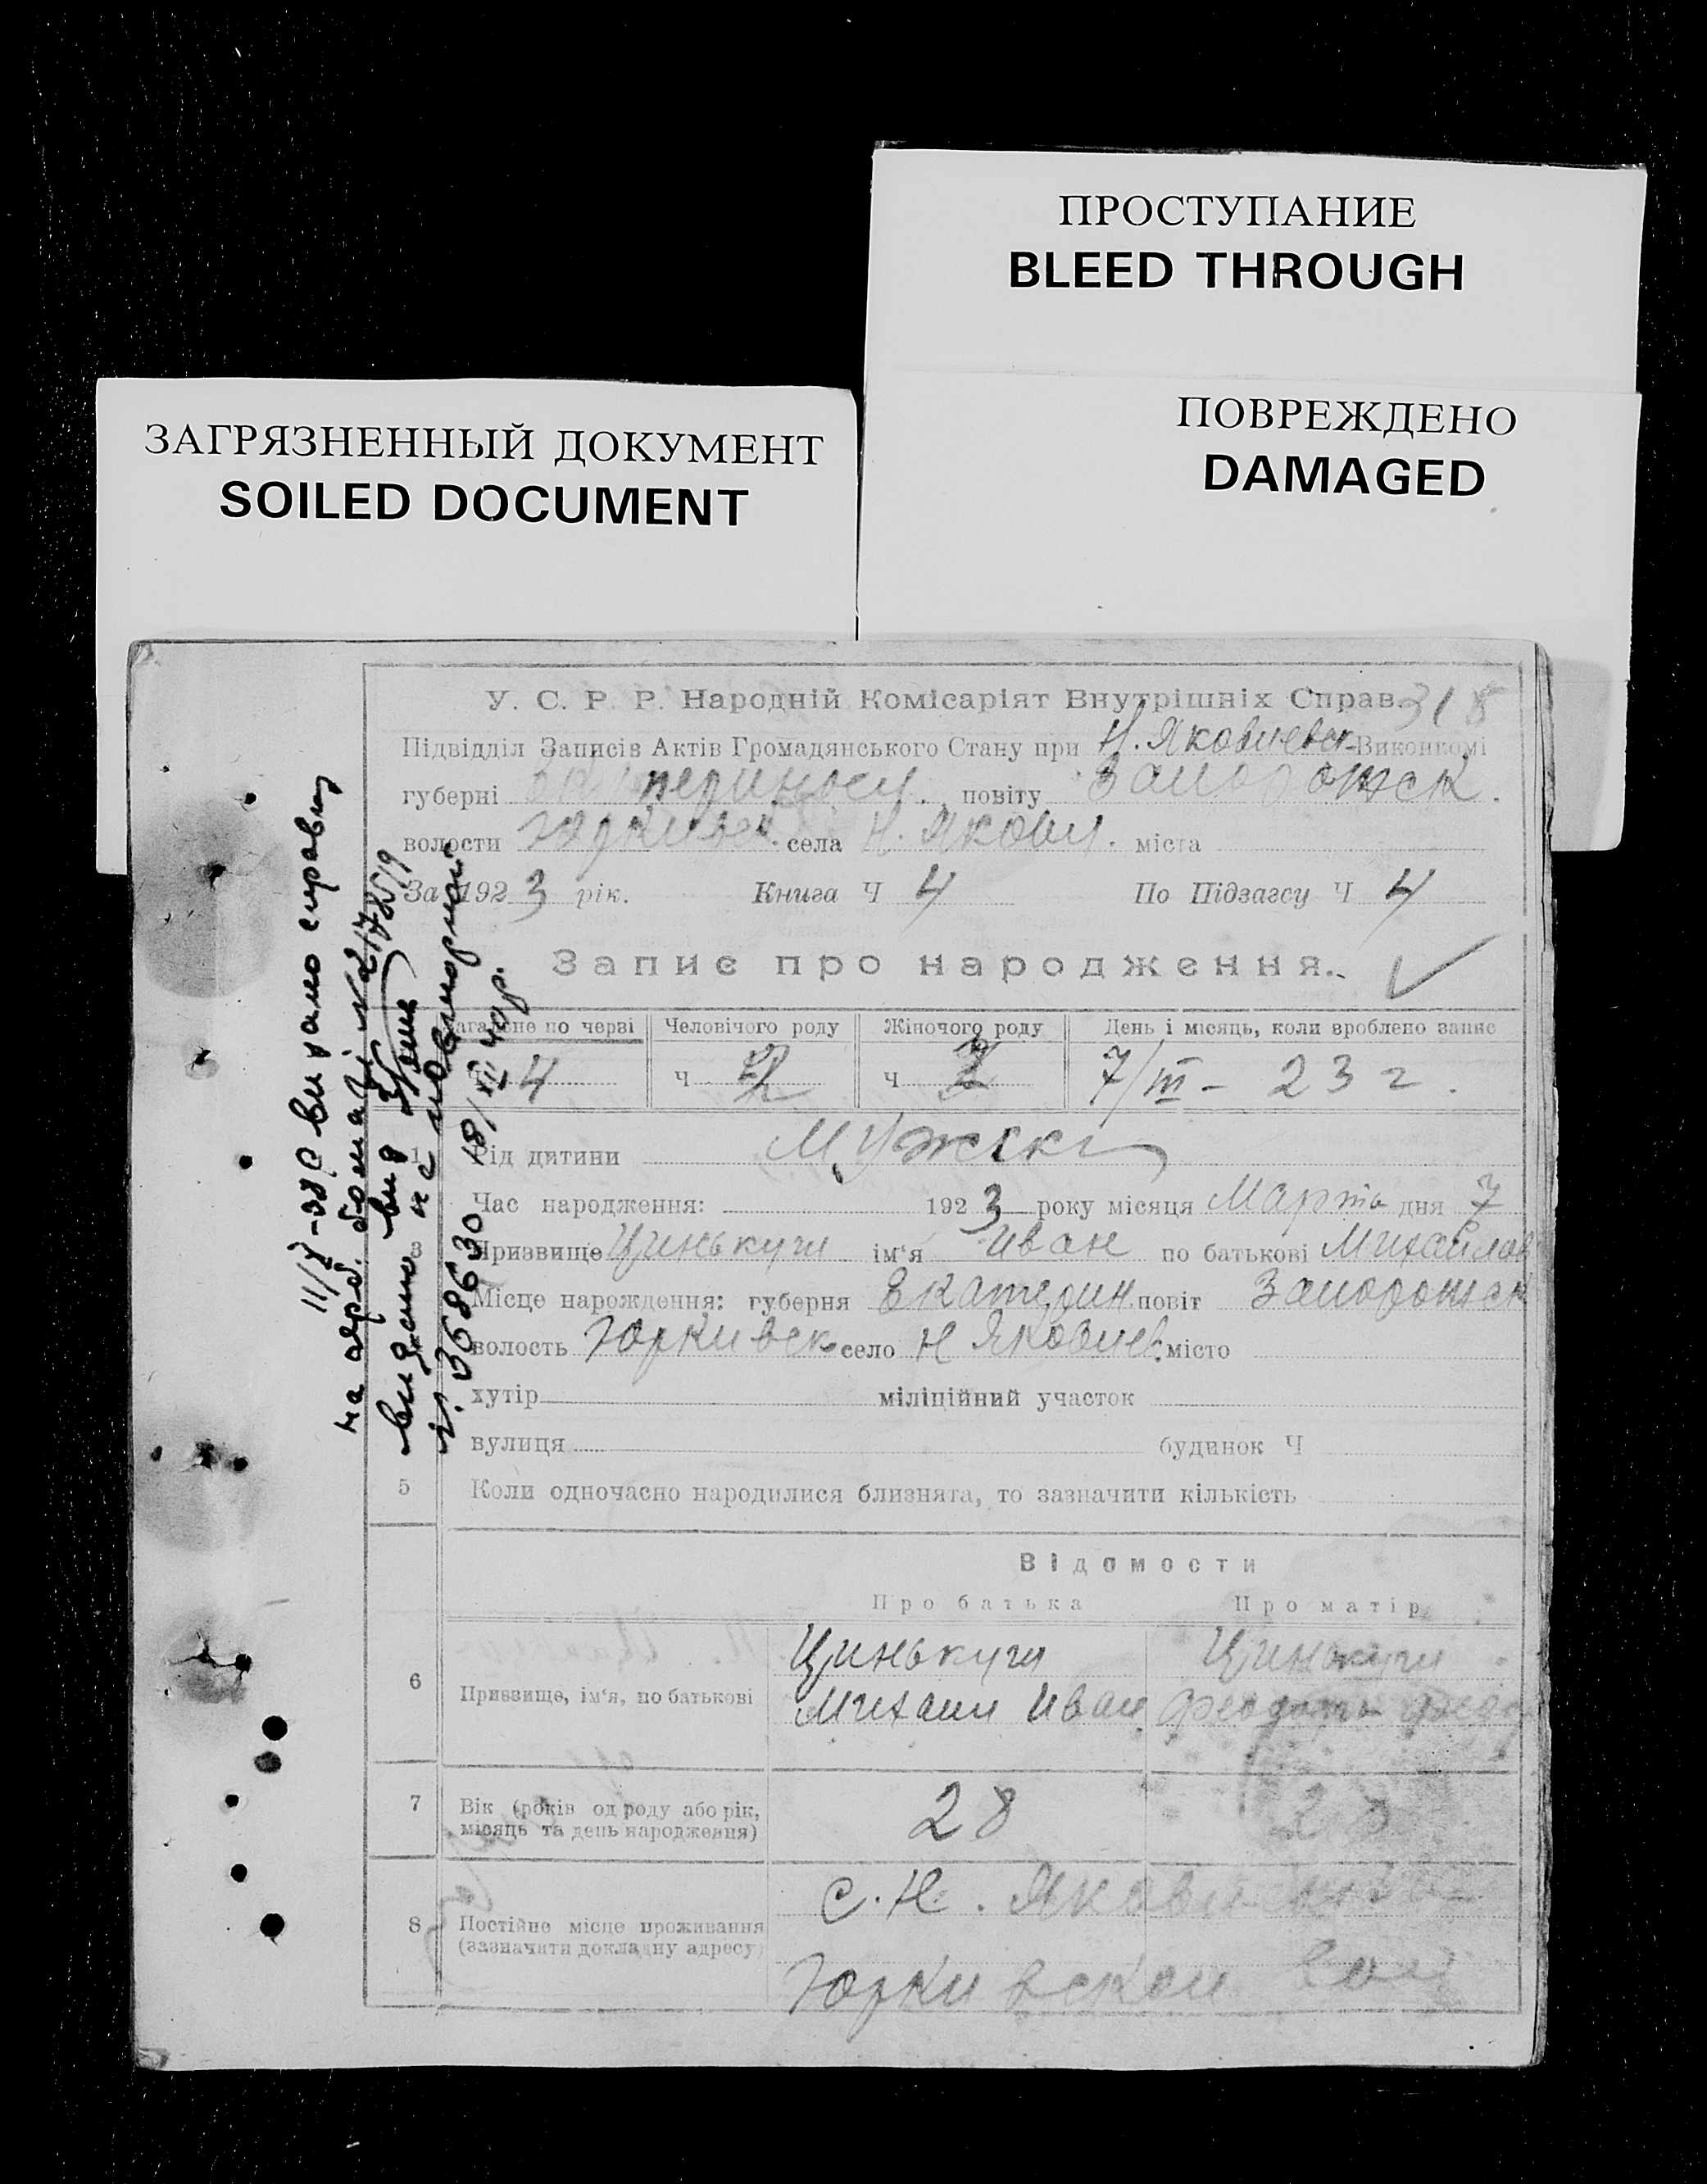 ПРОСТУПАНИЕ
BLEED THROUGH
ПОВРЕЖДЕНО
DAMAGED
ЗАГРЯЗНЕННЫЙ ДОКУМЕНТ
SOILED DOCUMENT
У. С. Р. Р. Народній Комісаріят Внутрішніх Справ 318
Підвідділ Записів Актів Громадянського Стану при Н. Яковлевск. Виконкомі
губерні Екатериносл. повіту Запорожск.
волости Юркивск. села Н. Яковл. міста
За 1923 рік. Книга Ч 4 По Підзагсу Ч 4
Запис про народження.
Загальне по черзі Человічого роду Жіночого роду День і місяць, коли вроблено запис
4 Ч 2 Ч 7/III - 23 г.
1 Рід дитини Мужск
Час народження: 1923 року місяця Марта дня 7
3 Призвище Цинькуш ім'я Иван по батькові Михайлов
Місце народження: губерня Екатерин. повіт Запорожск
волость Юркивск село Н Яковлев. місто
хутір міліційний участок
вулиця будинок Ч
5 Коли одночасно народилися близнята, то зазначити кількість
Відомости
Про батька Про матір
Цинькуш Цинькуш
6 Призвище, ім'я, по батькові Михаил Иван
7 Вік (років од роду або рік, 28 28
місяць та день народження)
с. Н. Яковлевка
8 Постійне місце проживання
(зазначити докладну адресу)
Юркивской вол
11/X-38р видано справку
на гербо. бомазі № 217859
видано від
і. 368630 18/III 40р.